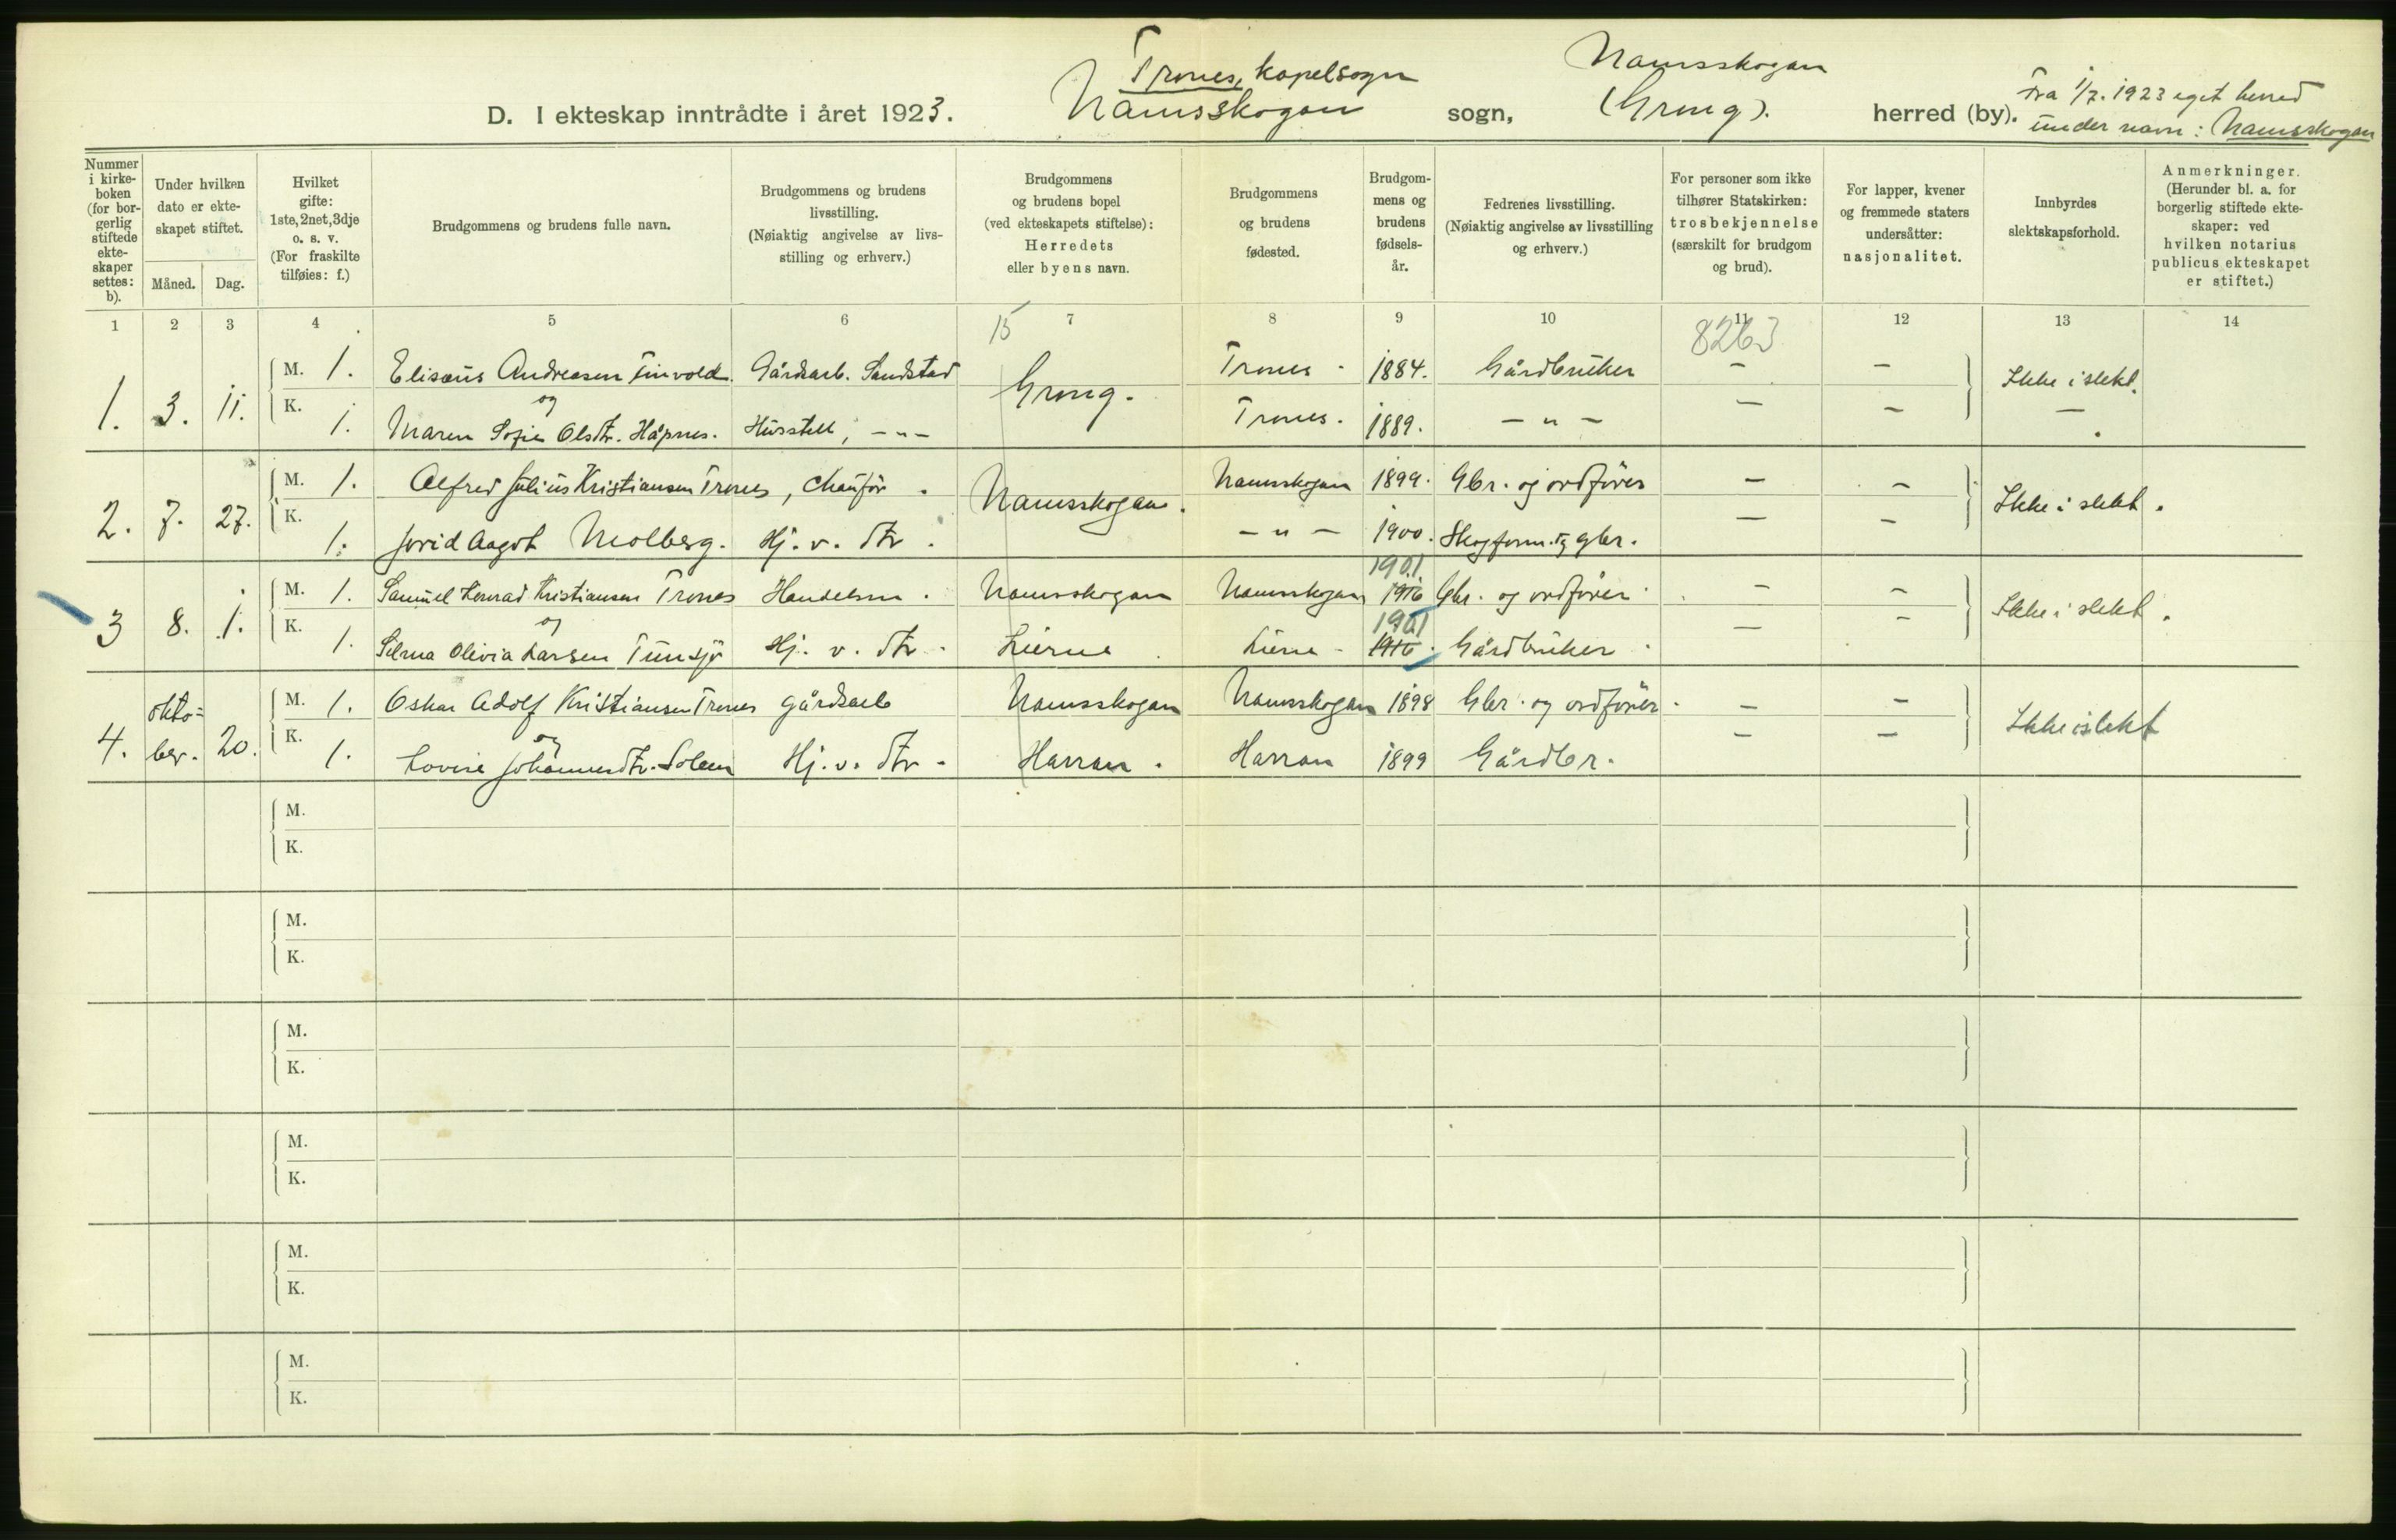 Trones, kapelsogn
Namsskogan
D. I ekteskap inntrådte i året 1923. Namsskogan sogn, (Grong). herred (by).
Fra 1/7. 1923 eget herred
under navn: Namsskogan
Nummer i kirke-boken (for bor-gerlig stiftede ekte-skaper settes: b).
Under hvilken dato er ekte-skapet stiftet.
Måned. Dag.
Hvilket gifte: 1ste, 2net, 3dje o. s. v. (For fraskilte tilføies: f.)
Brudgommens og brudens fulle navn.
Brudgommens og brudens livsstilling. (Nøiaktig angivelse av livs-stilling og erhverv.)
Brudgommens og brudens bopel (ved ekteskapets stiftelse): Herredets eller byens navn.
Brudgommens og brudens fødested.
Brudgom-mens og brudens fødsels-år.
Fedrenes livsstilling. (Nøiaktig angivelse av livsstilling og erhverv.)
For personer som ikke tilhører Statskirken: trosbekjennelse (særskilt for brudgom og brud).
For lapper, kvener og fremmede staters undersåtter: nasjonalitet.
Innbyrdes slektskapsforhold.
Anmerkninger. (Herunder bl. a. for borgerlig stiftede ekte-skaper: ved hvilken notarius publicus ekteskapet er stiftet.)
1 2 3 4 5 6 7 8 9 10 11 12 13 14
15 8263
1. 3. 11. M. 1. Elisæus Andreasen Finvold. Gårdsarb. Sandstad Grong. Trones - 1884. Gårdbruker - - Ikke i slekt.
og
K. 1. Maren Sofie Olsdtr. Håpnes. Husstell, - " - Trones. 1889. - " - - - -
2. 7. 27. M. 1. Alfred Julius Kristiansen Trones, Chaufør. Namsskogan. Namsskogan 1899. Gbr. og ordfører - - Ikke i slekt.
K. 1. Jorid Aagot Molberg. Hj. v. dtr. - " - 1900. Skogform. og gbr. - -
1901
3 8. 1. M. 1. Samuel Konrad Kristiansen Trones Handelsm. Namsskogan Namsskogan 1916 Gbr. og ordfører - - Ikke i slekt.
og 1901
K. 1. Selma Olivia Larsen Tunsjø Hj. v. dtr. Lierne Lierne - 1916. Gårdbruker - -
4. okto= ber. 20. M. 1. Oskar Adolf Kristiansen Trones gårdsarb Namsskogan Namsskogan 1898 Gbr. og ordfører - - Ikke i slekt
og
K. 1. Lovise Johannesdtr. Solem Hj. v. dtr - Harran. Harran 1899 Gårdbr. - -
M.
K.
M.
K.
M.
K.
M.
K.
M.
K.
M.
K.